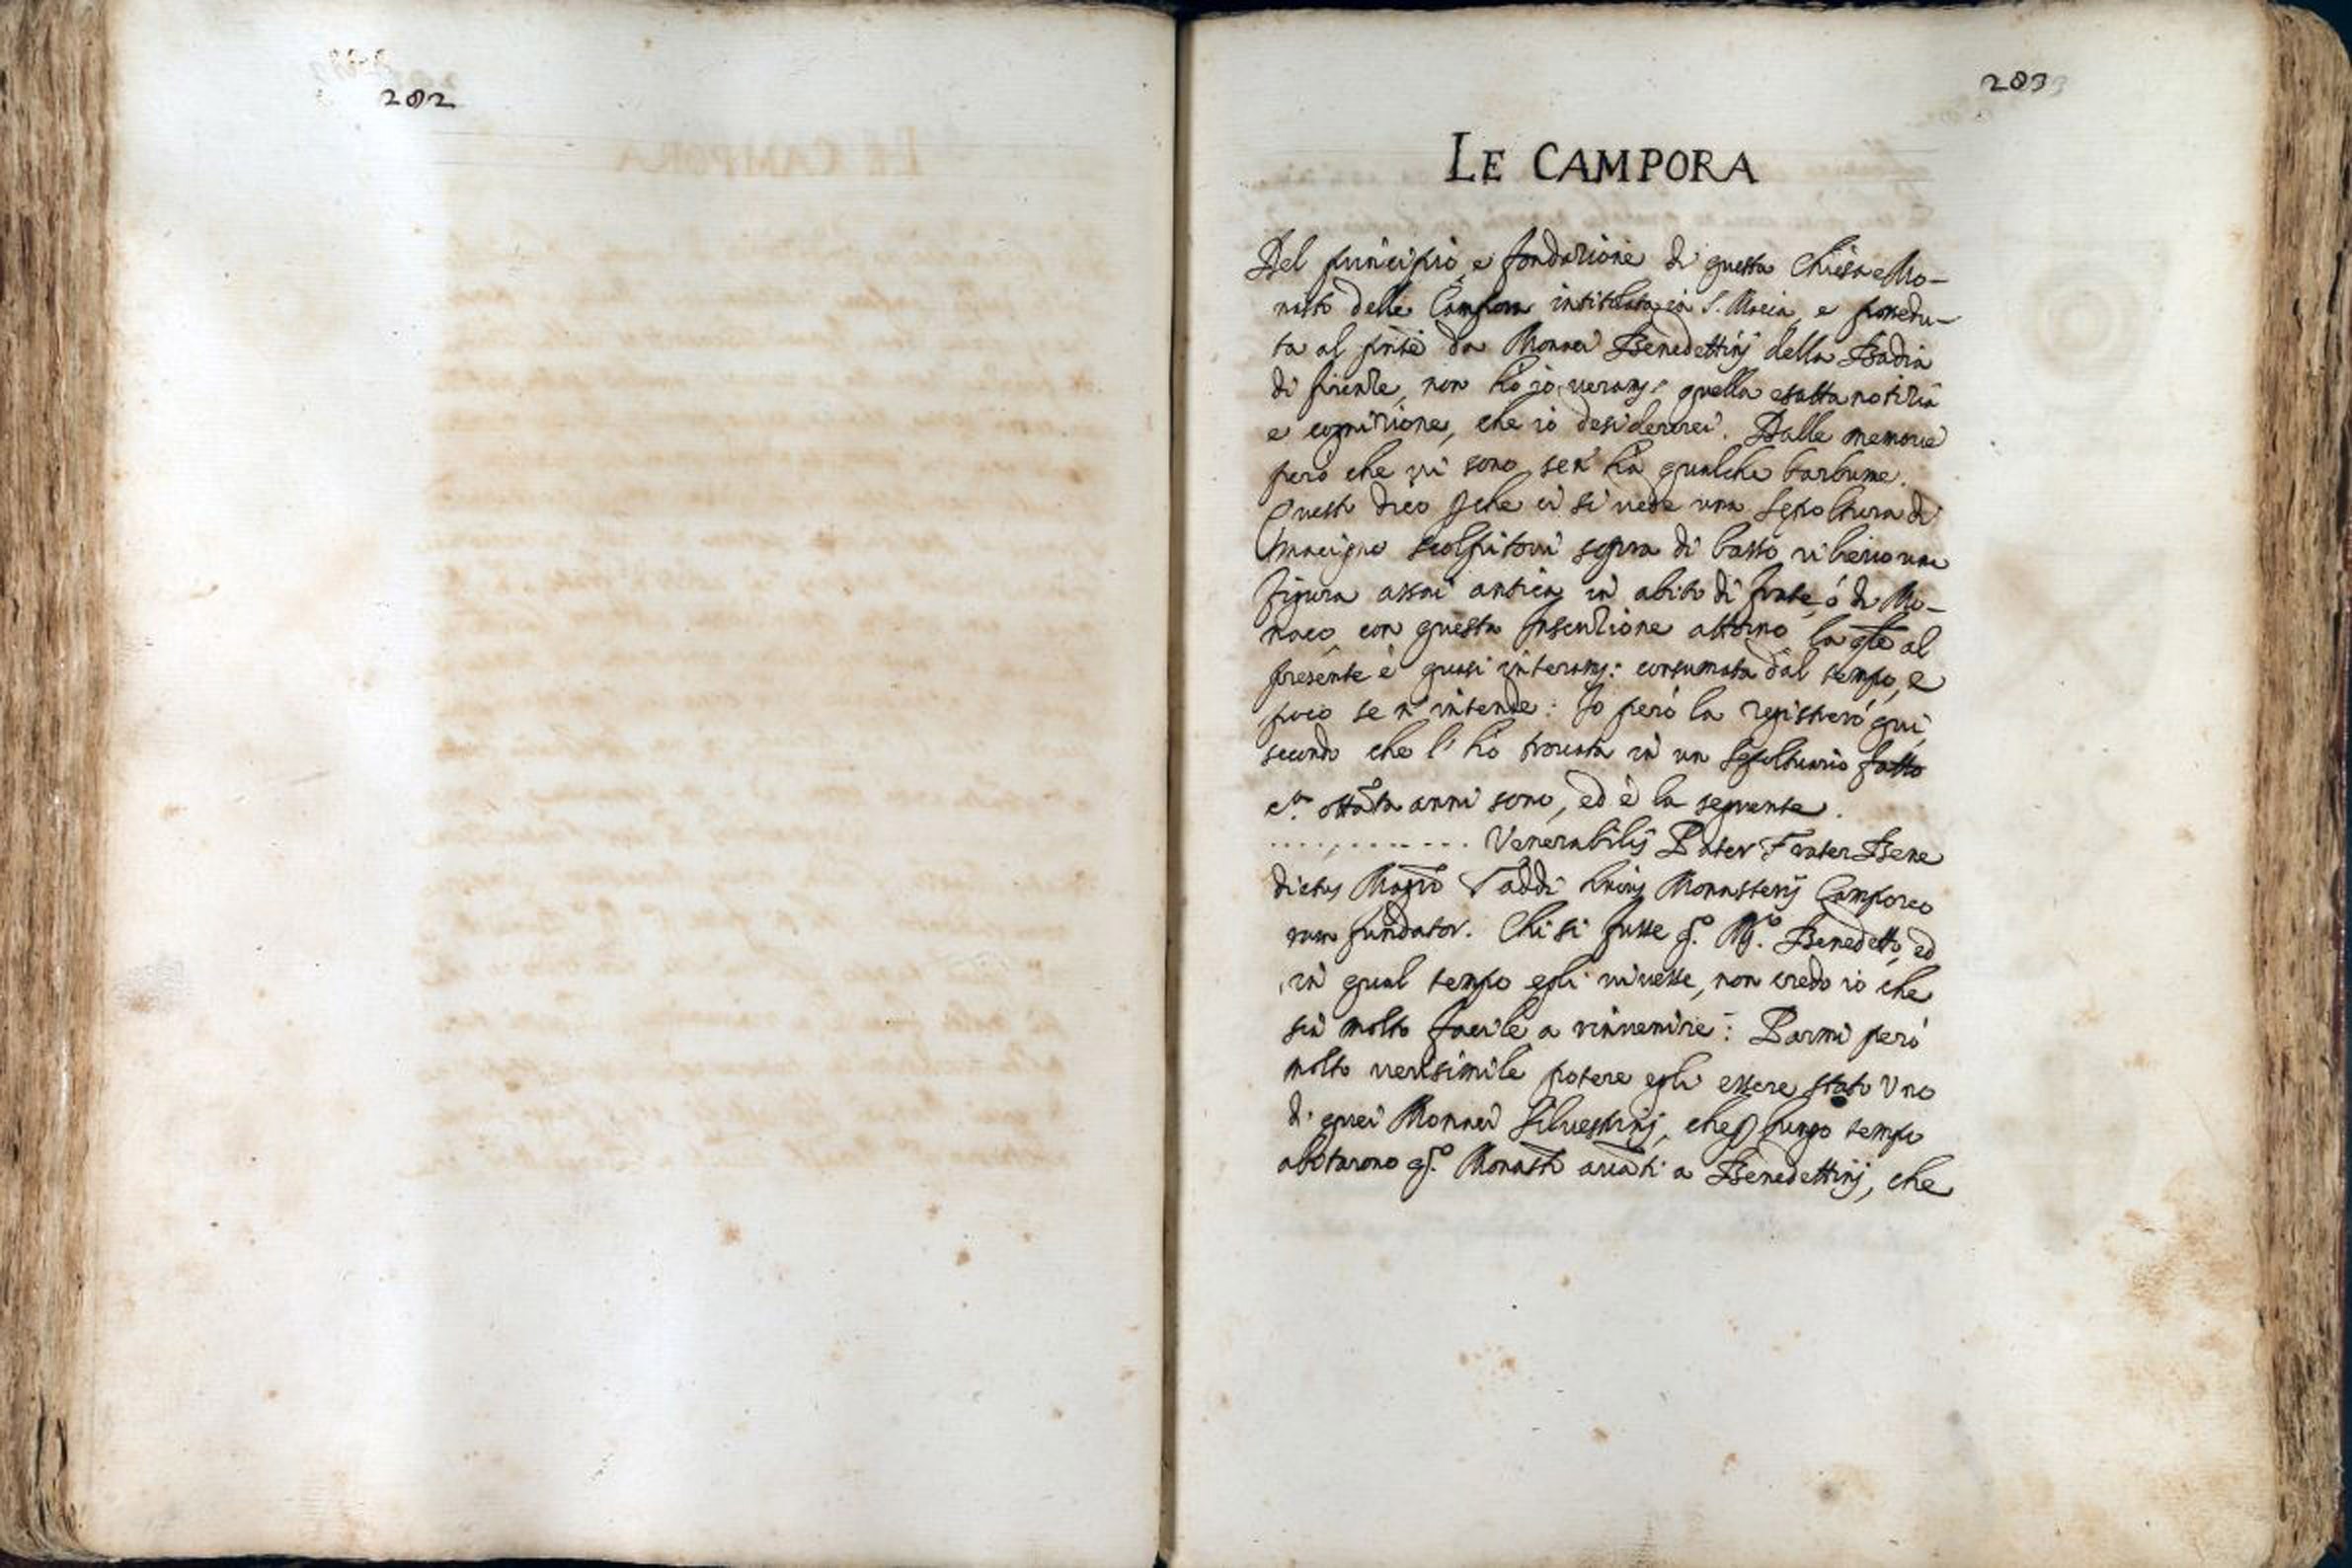 282
283
LE CAMPORA
Del principio, e fondazione di questa Chiesa e Mo-
nastº delle Campora intitolata in S. Maria, e possedu-
ta al pnte da Monaci Benedettinj della Badia
di firenze, non hò io veram: quella esatta notizia
e cognizione, che io desidererei. Dalle memorie
però che vi sono sen' hà qualche barlume.
Questo dico che ci si vede una Sepoltura di
macigno scolpitovi sopra di basso rilievo una
figura assai antica in abito di frate, ó di Mo-
naco, con questa Inscrizione attorno la qle al
presente è quasi interam: consumata dal tempo, e
poco se n' intende: Io però la registerò qui,
secondo che l' hò trovata in un Sepoltuario fatto
cª. ottāta anni sono, ed è la seguente.
.............. Venerabilis Pater Frater Bene
dictus Taddi huius Monasterij Camporeo
rum fundator. Chi si fusse qº. Benedetto, ed
in qual tempo egli vivesse, non credo io che
sia molto facile a rinvenire: Parmi però
molto verisimile potere egli essere stato Uno
di quei Monaci Silvestrinj, che lungo tempo
abitarono qº. Monastº avāti a Benedettinj, che